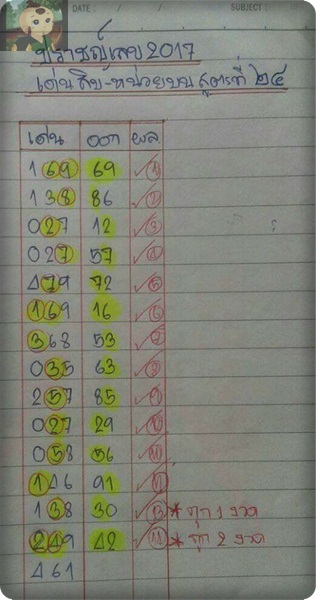 DATE : / / SUBJECT :
ปราชญ์เลข 2017
เด่นสิบ-หน่วยบน สูตรที่ ๒๔
เด่น ออก ผล
169 69 ✓ 1
138 86 ✓ 2
027 12 ✓ 3
027 57 ✓ 4
479 72 ✓ 5
169 16 ✓ 6
368 53 ✓ 7
035 63 ✓ 8
257 85 ✓ 9
027 29 ✓ 10
058 56 ✓ 11
146 91 ✓ 12
138 30 ✓ 13 * ถูก 1 งวด
249 42 ✓ 14 * ถูก 2 งวด
461